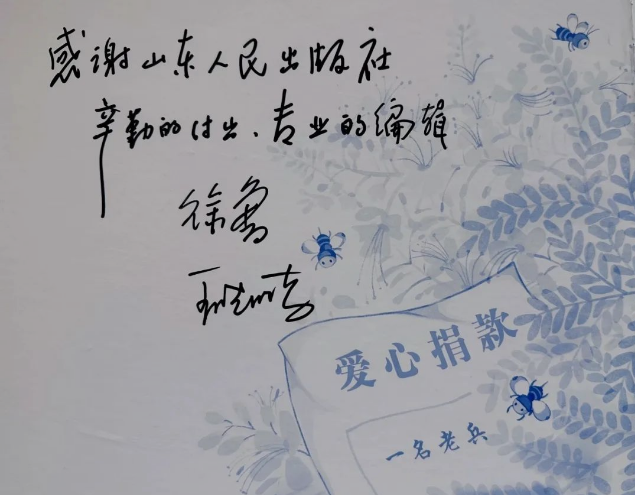 感谢山东人民出版社
辛勤的付出、专业的编辑
徐鲁
爱心捐款
一名老兵